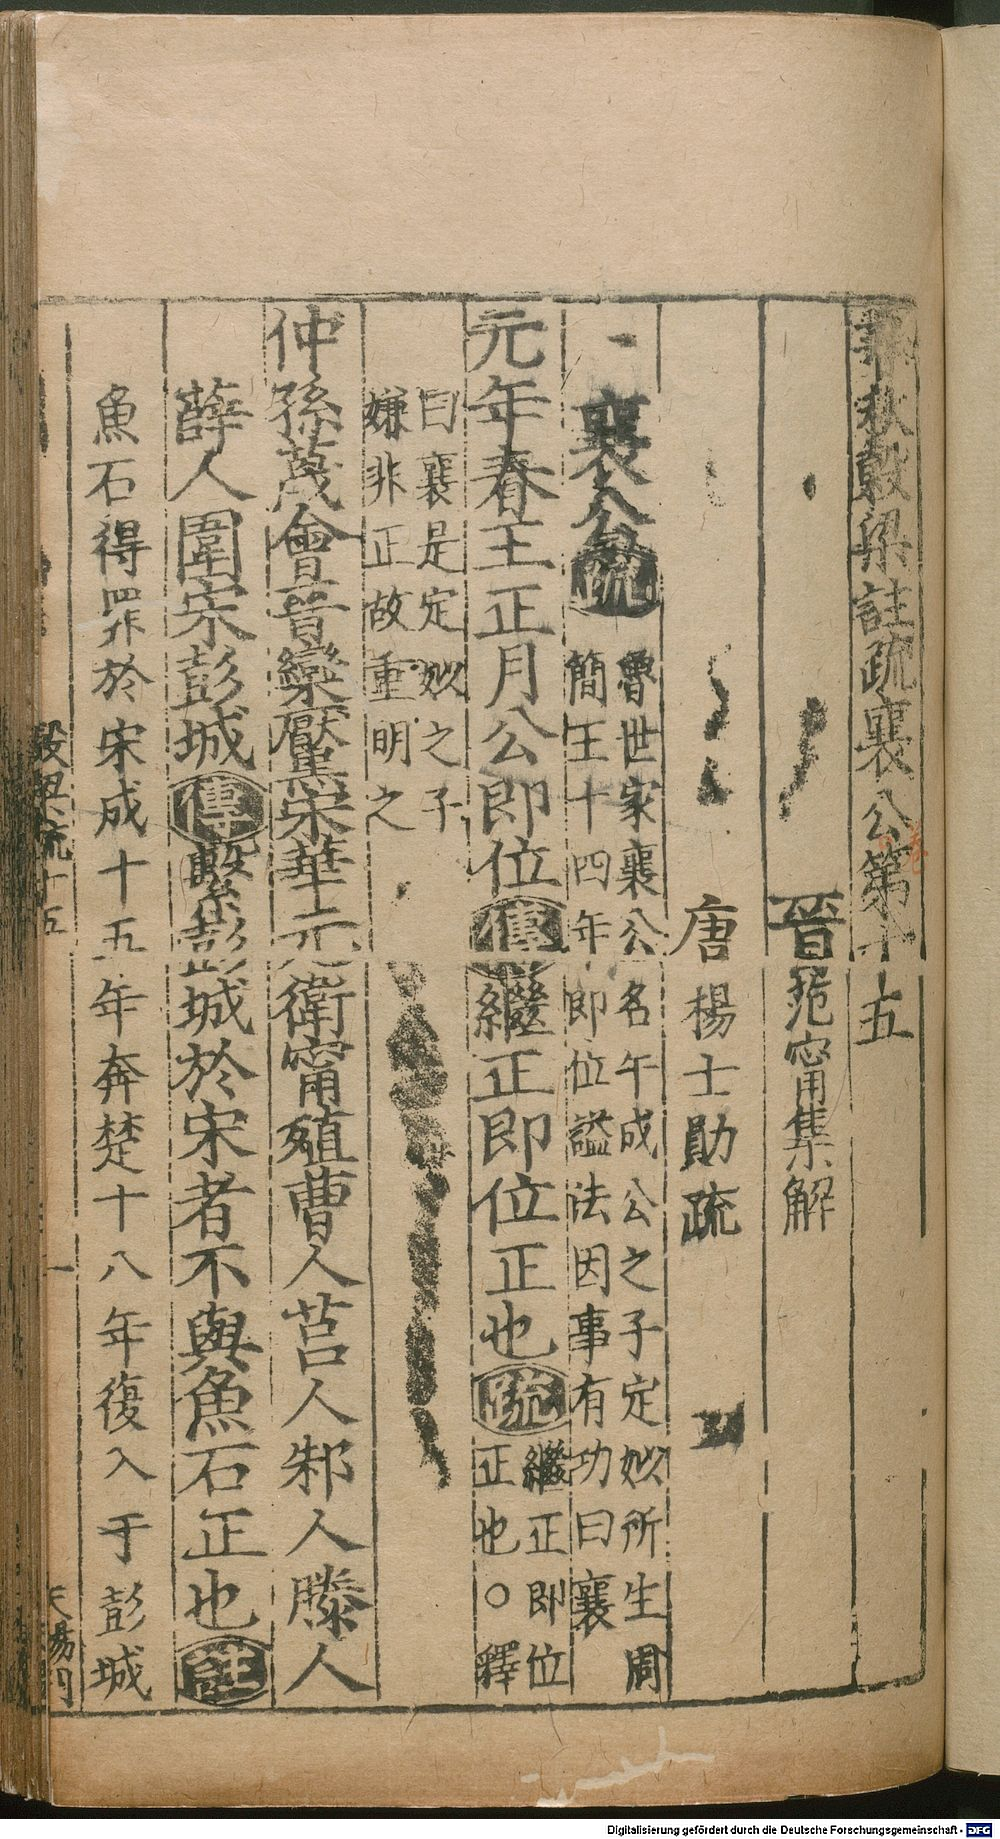 春秋穀梁註疏襄公第十五
晉范甯集解
唐楊士勛疏
襄公疏魯世家襄公名午成公之子定姒所生周
簡王十四年即位諡法因事有功曰襄
元年春王正月公即位傳繼正即位正也疏繼正即位
正也○釋
曰襄是定姒之子
嫌非正故重明之
仲孫蔑會晉欒黶宋華元衛甯殖曹人莒人邾人滕人
薛人圍宋彭城傳繫彭城於宋者不與魚石正也註
魚石得罪於宋成十五年奔楚十八年復入于彭城
穀梁疏十五
一
卷
Digitalisierung gefördert durch die Deutsche Forschungsgemeinschaft - DFG